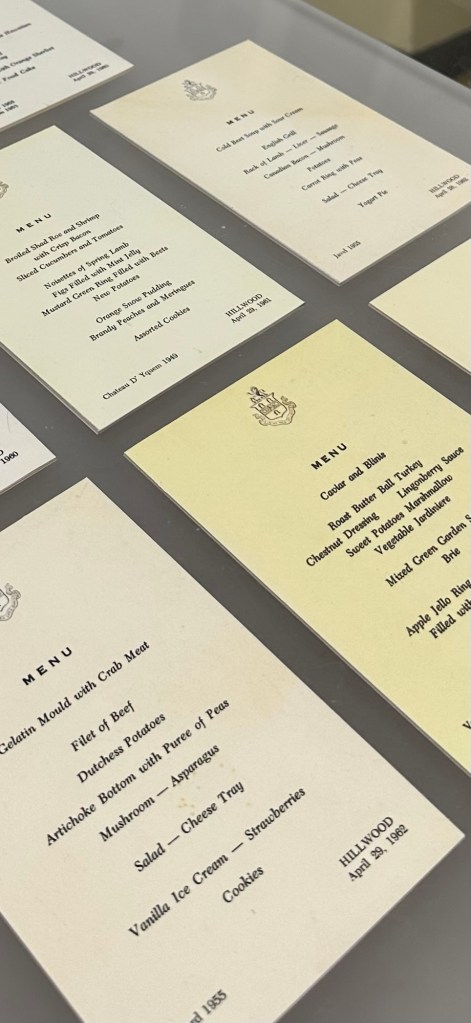 with Orange Sherbet
Food Cake
HILLWOOD
MENU
Cold Beet Soup with Sour Cream
English Grill
Rack of Lamb — Liver — Sausage
Canadian Bacon — Mushroom
Potatoes
Carrot Ring with Peas
Salad — Cheese Tray
Yogurt Pie
HILLWOOD
1955
MENU
Broiled Shad Roe and Shrimp
with Crisp Bacon
Sliced Cucumbers and Tomatoes
Noisettes of Spring Lamb
Figs Filled with Mint Jelly
Mustard Green Ring Filled with Beets
New Potatoes
Orange Snow Pudding
Brandy Peaches and Meringues
Assorted Cookies
HILLWOOD
April 29, 1961
Chateau D' Yquem 1949
1960
MENU
Caviar and Blinis
Roast Butter Ball Turkey
Chestnut Dressing Lingonberry Sauce
Sweet Potatoes Marshmallow
Vegetable Jardiniere
Mixed Green Garden
Brie
Apple Jello Ring
Filled with
MENU
Gelatin Mould with Crab Meat
Filet of Beef
Dutchess Potatoes
Artichoke Bottom with Puree of Peas
Mushroom — Asparagus
Salad — Cheese Tray
Vanilla Ice Cream — Strawberries
Cookies
HILLWOOD
April 29, 1962
rd 1955